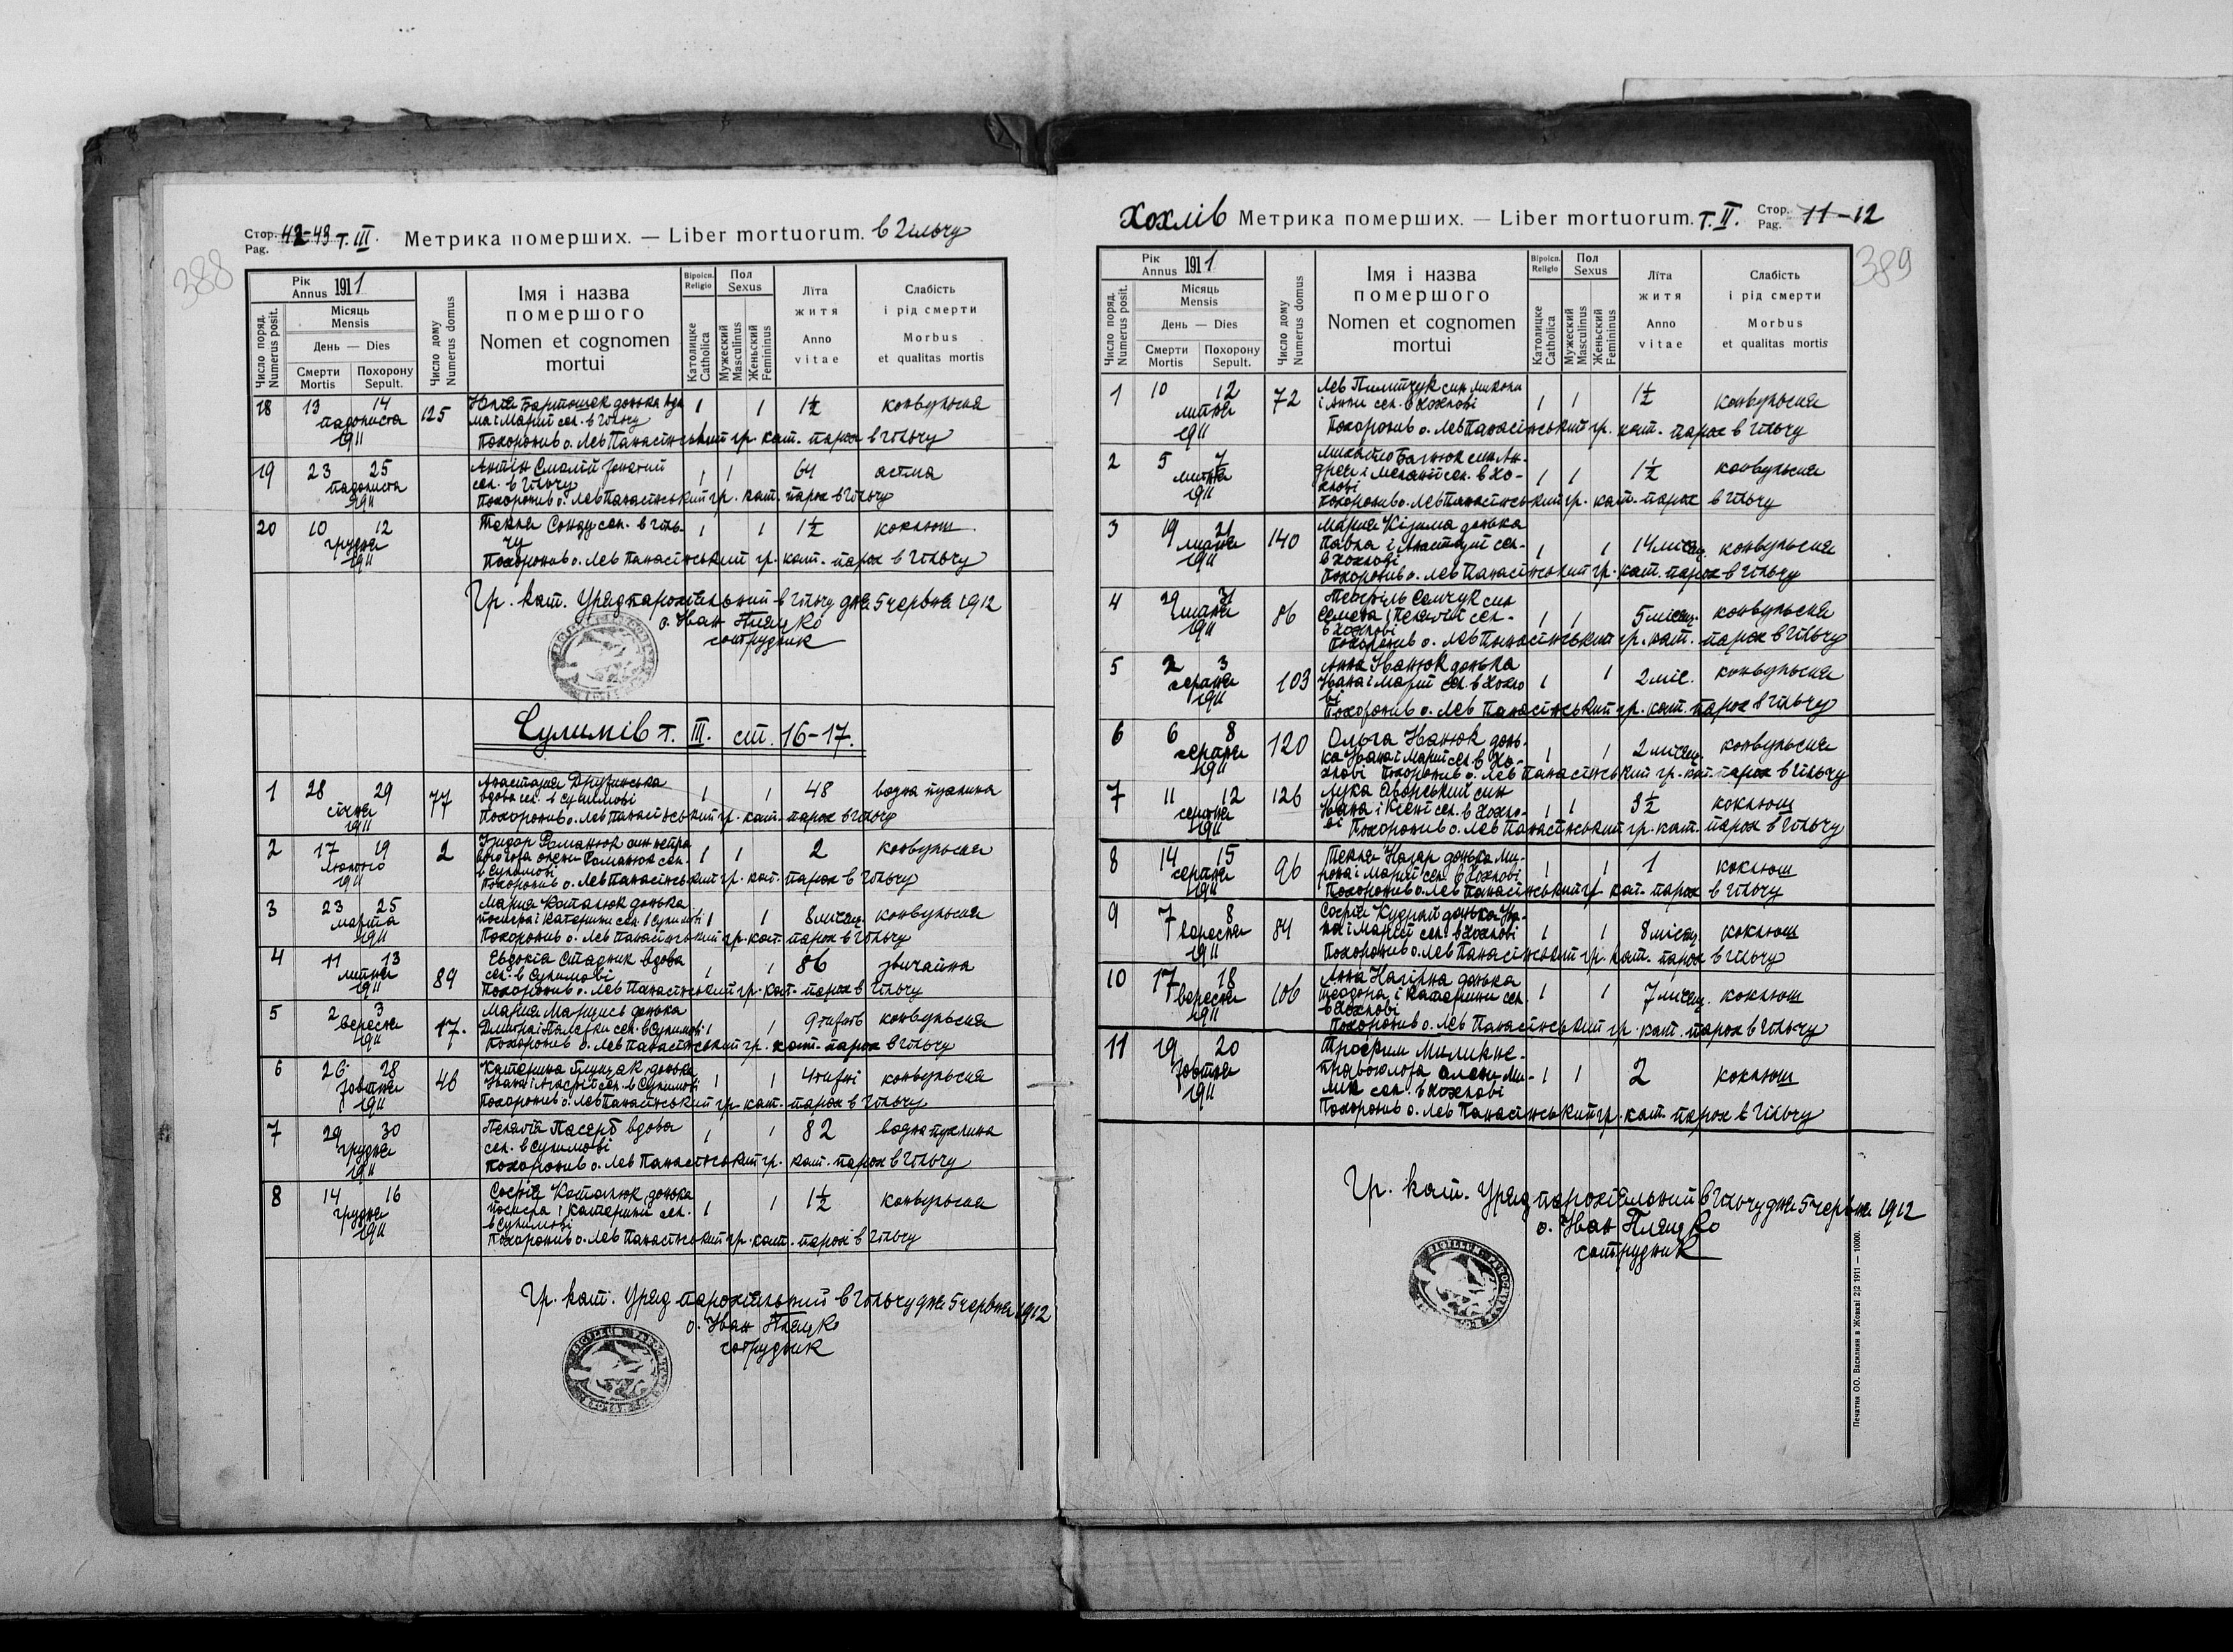 388
Стор. Pag. 42-43 т. III. Метрика померших. — Liber mortuorum. в Гільчу
Число поряд. Numerus posit.
Рік Annus 1911
Місяць Mensis
День — Dies
Смерти Mortis
Похорону Sepult.
Число дому Numerus domus
Імя і назва помершого
Nomen et cognomen mortui
Віроісп. Religio
Католицке Catholica
Пол Sexus
Мужеский Masculinus
Женьский Femininus
Літа житя
Anno vitae
Слабість і рід смерти
Morbus et qualitas mortis
18 13 14 125 Юлія Бартошак донька Ада 1 1 1½ конвульсия
падолиста ма і Марії сел. в Гільчу
1911 Похоронив о. Лев Панасінський гр. кат. парох в Гільчу
19 23 25 Антін Смолій жонатий 1 1 64 астма
падолиста сел. в Гільчу
1911 Похоронив о. Лев Панасінський гр. кат. парох в Гільчу
20 10 12 Текля Сонду сел. в Гіль- 1 1 1½ коклюш
грудня чу
1911 Похоронив о. Лев Панасінський гр. кат. парох в Гільчу
Гр. кат. Уряд парохіяльний в Гільчу дня 5 червня 1912
о. Іван Пляцко
сотрудник
Сулимів т. III. ст. 16-17.
1 28 29 77 Анастазия Дружинська 1 1 48 водна пухлина
січня вдова сел. в Сулимові
1911 Похоронив о. Лев Панасінський гр. кат. парох в Гільчу
2 17 19 2 Ізидор Романюк син непра 1 1 2 конвульсия
лютого вого ложа Олени Романюк сел.
1911 в Сулимові
Похоронив о. Лев Панасінський гр. кат. парох в Гільчу
3 23 25 Мария Каталюк донька 1 1 8 місяц. конвульсия
марта Йосифа і Катерини сел. в Сулимові
1911 Похоронив о. Лев Панасінський гр. кат. парох в Гільчу
4 11 13 89 Евдокія Стадник вдова 1 1 86 звичайна
липня сел. в Сулимові
1911 Похоронив о. Лев Панасінський гр. кат. парох в Гільчу
5 2 3 17. Мария Марцись донька 1 1 9 тижнів конвульсия
вересня Дмитра і Палагни сел. в Сулимові
1911 Похоронив о. Лев Панасінський гр. кат. парох в Гільчу
6 26 28 46 Катерина Глущак донька 1 1 4 тижні конвульсия
жовтня Івана і Агафії сел. в Сулимові
1911 Похоронив о. Лев Панасінський гр. кат. парох в Гільчу
7 29 30 Пелагія Пасерб вдова 1 1 82 водна пухлина
грудня сел. в Сулимові
1911 Похоронив о. Лев Панасінський гр. кат. парох в Гільчу
8 14 16 Софія Каталюк донька 1 1 1½ конвульсия
грудня Йосифа і Катерини сел.
1911 в Сулимові
Похоронив о. Лев Панасінський гр. кат. парох в Гільчу
Гр. кат. Уряд парохіяльний в Гільчу дня 5 червня 1912
о. Іван Пляцко
сотрудник
389
Хохлів Метрика померших. — Liber mortuorum. т. II. Стор. Pag. 11-12
Число поряд. Numerus posit.
Рік Annus 1911
Місяць Mensis
День — Dies
Смерти Mortis
Похорону Sepult.
Число дому Numerus domus
Імя і назва помершого
Nomen et cognomen mortui
Віроісп. Religio
Католицке Catholica
Пол Sexus
Мужеский Masculinus
Женьский Femininus
Літа житя
Anno vitae
Слабість і рід смерти
Morbus et qualitas mortis
1 10 12 72 Лев Пилипчук син Миколи 1 1 1½ конвульсия
липня і Анни сел. в Хохлові
1911 Похоронив о. Лев Панасінський гр. кат. парох в Гільчу
2 5 7 Михайло Багнюк син Ан- 1 1 1½ конвульсия
липня дрея і Меланії сел. в Хо-
1911 хлові
Похоронив о. Лев Панасінський гр. кат. парох в Гільчу
3 19 21 140 Мария Кізима донька 1 1 14 місяц. конвульсия
липня Павла і Анастазії сел.
1911 в Хохлові
Похоронив о. Лев Панасінський гр. кат. парох в Гільчу
4 29 31 86 Теофіль Семчук син 1 1 5 місяц. конвульсия
липня Семена і Пелагії сел.
1911 в Хохлові
Похоронив о. Лев Панасінський гр. кат. парох в Гільчу
5 2 3 103 Анна Іванюк донька 1 1 2 міс. конвульсия
серпня Івана і Марії сел. в Хохло
1911 ві
Похоронив о. Лев Панасінський гр. кат. парох в Гільчу
6 6 8 120 Ольга Іванюк донь- 1 1 2 місяц. конвульсия
серпня ка Івана і Марії сел. в Хо-
1911 хлові Похоронив о. Лев Панасінський гр. кат. парох в Гільчу
7 11 12 126 Лука Яворський син 1 1 3½ коклюш
серпня Івана і Ксені сел. в Хохло-
1911 ві Похоронив о. Лев Панасінський гр. кат. парох в Гільчу
8 14 15 96 Текля Назар донька Ми- 1 1 1 коклюш
серпня рона і Марії сел. в Хохлові
1911 Похоронив о. Лев Панасінський гр. кат. парох в Гільчу
9 7 8 84 Софія Кудрай донька Іва- 1 1 8 місяц. коклюш
вересня на і Марії сел. в Хохлові
1911 Похоронив о. Лев Панасінський гр. кат. парох в Гільчу
10 17 18 106 Анна Нагірна донька 1 1 7 місяц. коклюш
вересня Теодора і Катерини сел.
1911 в Хохлові
Похоронив о. Лев Панасінський гр. кат. парох в Гільчу
11 19 20 Трофим Милик не- 1 1 2 коклюш
жовтня правого ложа Олени Ми-
1911 лик сел. в Хохлові
Похоронив о. Лев Панасінський гр. кат. парох в Гільчу
Гр. кат. Уряд парохіяльний в Гільчу дня 5 червня 1912
о. Іван Пляцко
сотрудник
Печатня ОО. Василиян в Жовкві 2|2 1911 — 10000.